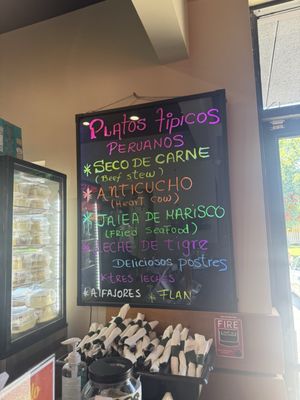 Platos típicos
Peruanos
* Seco de Carne
(Beef stew)
* Anticucho
(Heart cow)
* Jalea de Marisco
(Fried seafood)
* Leche de tigre
Deliciosos postres
* tres leches
* Alfajores * Flan
FIRE